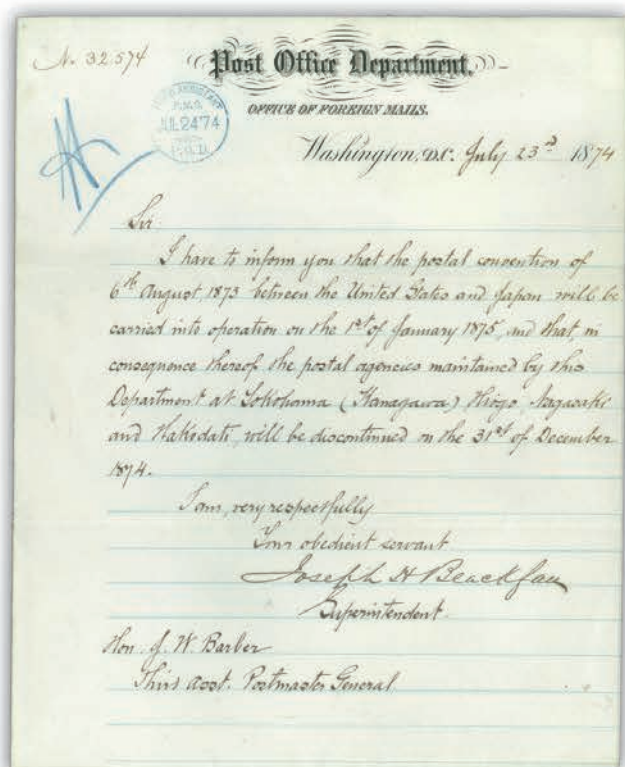 No. 32.574
Post Office Department,
OFFICE OF FOREIGN MAILS.
THIRD ASSISTANT
P.M.G.
JUL 24 '74
P.O.D.
Washington, D.C. July 23d 1874
Sir:
I have to inform you that the postal convention of
6th August 1873 between the United States and Japan will be
carried into operation on the 1st of January 1875, and that, in
consequence thereof the postal agencies maintained by this
Department at Yokohama (Kanagawa) Hiogo, Nagasaki
and Hakodati, will be discontinued on the 31st of December
1874.
I am, very respectfully
Your obedient servant
Joseph H Blackfan
Superintendent.
Hon. J. W. Barber
Third asst. Postmaster General